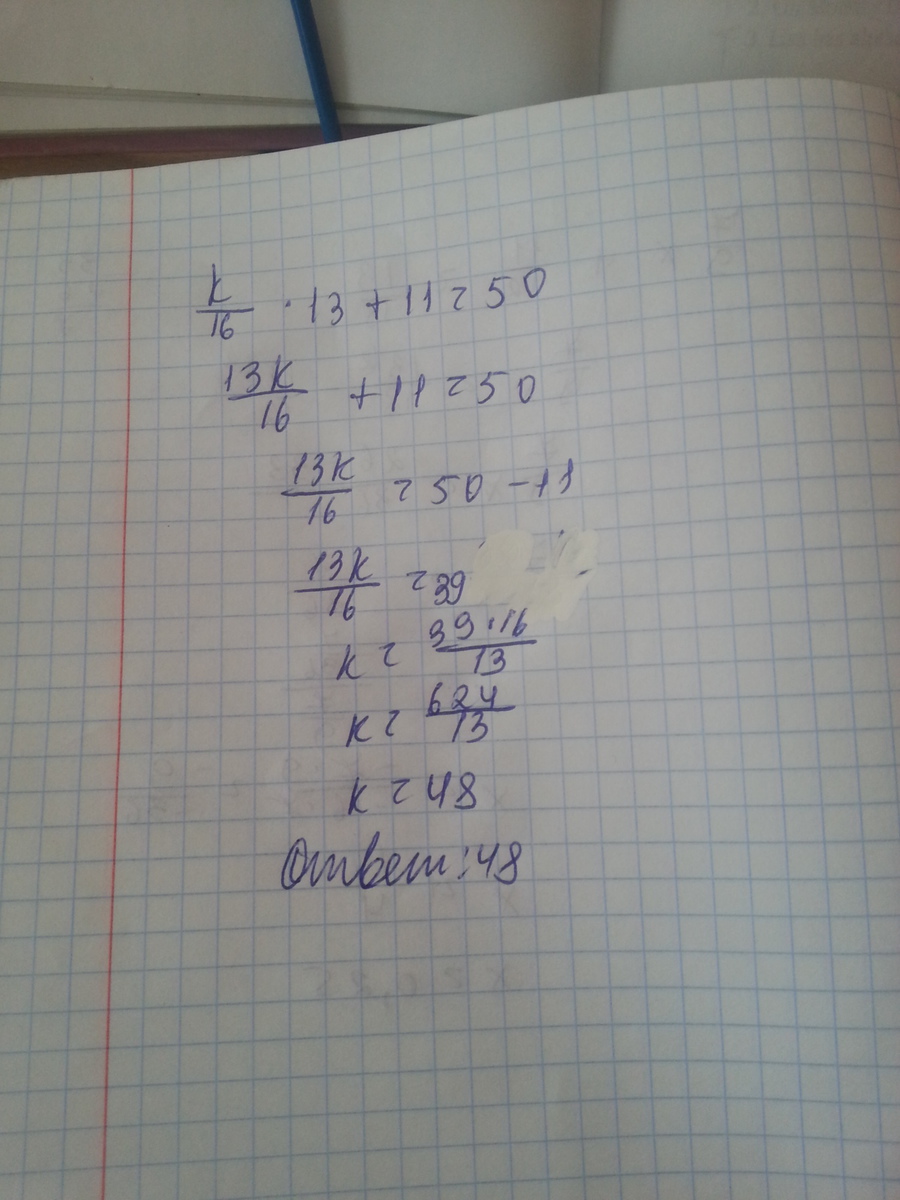 k/16 · 13 + 11 = 50
13k/16 + 11 = 50
13k/16 = 50 - 11
13k/16 = 39
k = 39·16/13
k = 624/13
k = 48
Ответ: 48